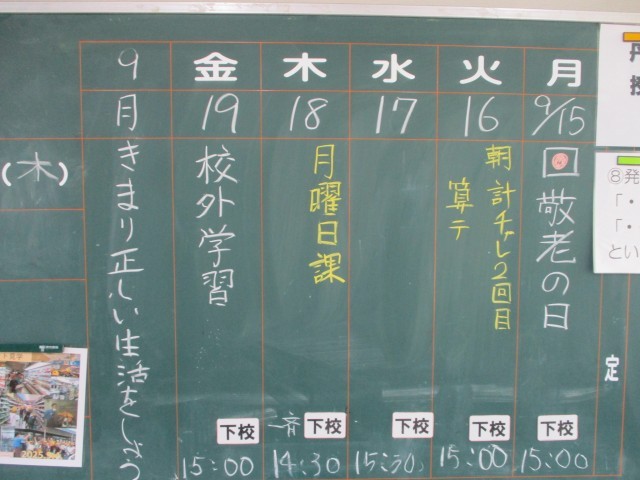 月
9/15
敬老の日
下校
15:00
火
16
朝 計チャレ2回目
算テ
下校
15:00
水
17
下校
15:30
木
18
月曜日課
一斉
下校
14:30
金
19
校外学習
下校
15:00
9月
きまり正しい生活をしよう
(木)
定
⑧発
「・
「・
とい